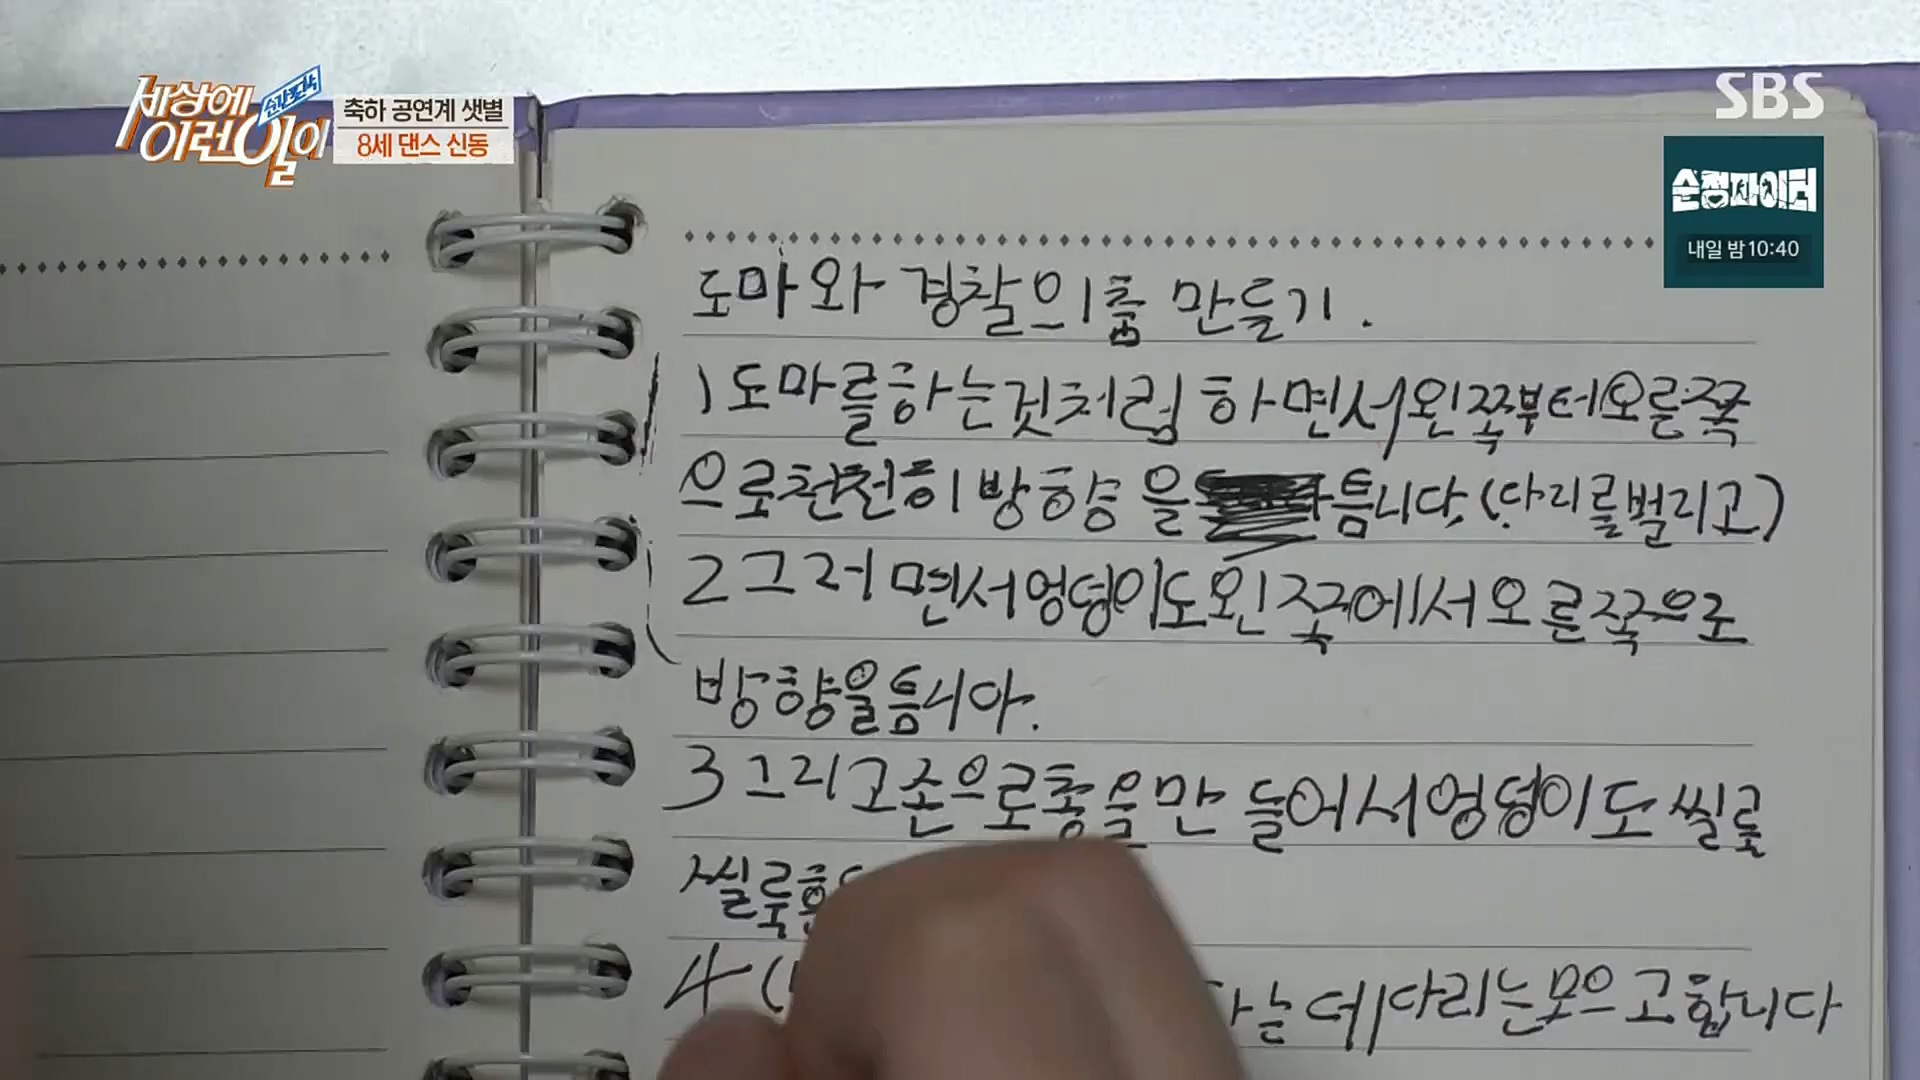 세상에
순간포착
이런일이
축하 공연계 샛별
8세 댄스 신동
SBS
순정파이터
내일 밤 10:40
도마와 경찰의춤 만들기.
1 도마를하는것처럼 하면서왼쪽부터오른쪽
으로천천히 방향을 틈니다. (다리를벌리고)
2 그러면서엉덩이도왼쪽에서오른쪽으로
방향을틈니아.
3 그리고손으로총을만들어서엉덩이도 씰룻
씰룩흔
4 ( 는데 다리는모으고합니다